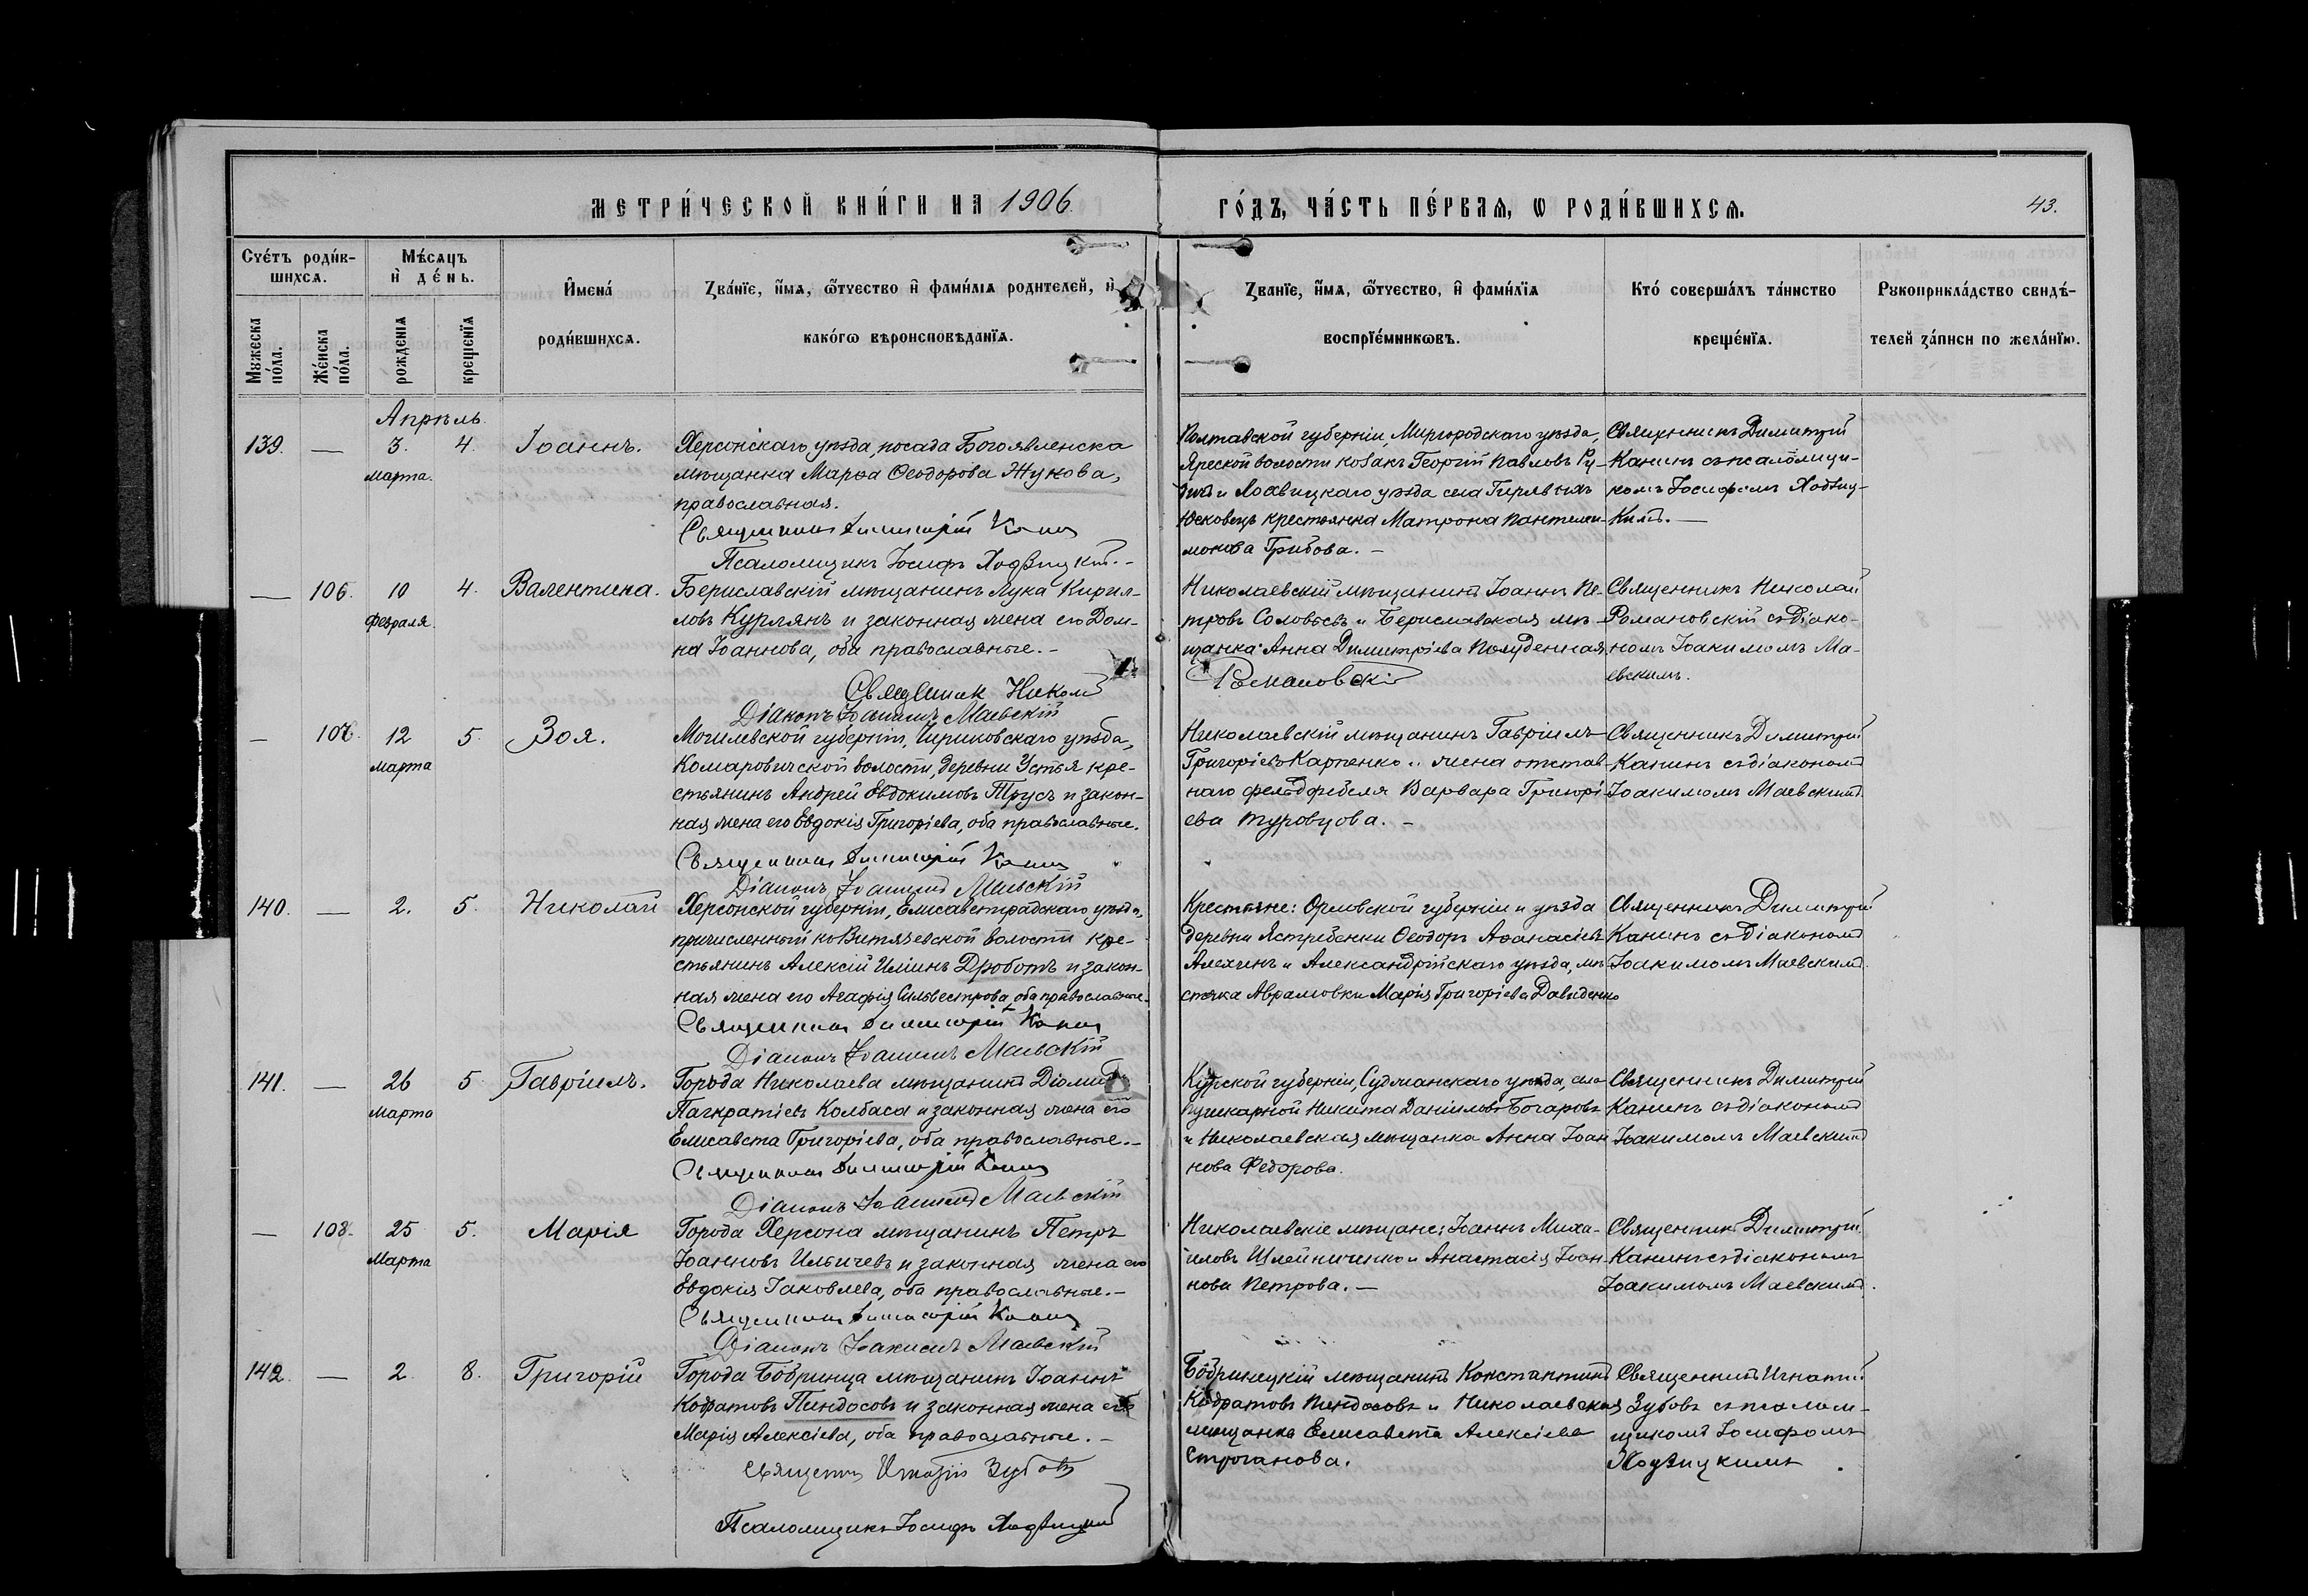 МЕТРИ́ЧЕСКОЙ КНИ́ГИ НА 1906.
ГО́ДЪ, ЧА́СТЬ ПЕ́РВАЯ, Ѡ РОДИ́ВШИХСЯ.
43.
Сче́тъ роди́в-
шихся.
Мѣ́сяцъ
и҆ де́нь.
Мꙋжеска
по́ла.
Же́нска
по́ла.
рожденїя
крещенїя
И҆мена́
роди́вшихся.
Зва́нїе, и҆́мя, ѻ҆́тчество и҆ фами́лїя родителей, и҆
како́гѡ вѣроисповѣданїя.
Званїе, и҆́мя, ѻ҆́тчество, и҆ фами́лїя
воспрїе́мникѡвъ.
Кто́ соверша́лъ та́инство
креще́нїя.
Рꙋкоприкла́дство свидѣ́-
телей за́писи по жела́нїю.
Апрѣль
139. — 3. 4. Іоаннъ.
Марта.
Херсонскаго уѣзда, посада Богоявленска
мѣщанка Марѳа Ѳеодорова Жукова,
православная.
Священникъ Димитрій Канин
Псаломщикъ Іосифъ Ходзицкій.-
Полтавской губерніи, Миргородскаго уѣзда,
Яреской волости козакъ Георгій Павловъ Ру-
и Лохвицкаго уѣзда села
Юсковецъ крестьянка Матрона Пантелей-
монова Грибова. -
Священникъ Димитрій
Канинъ съ псаломщи-
комъ Іосифомъ Ходзиц-
кимъ. —
— 106. 10 4. Валентина.
Февраля.
Бериславскій мѣщанинъ Лука Кирил-
ловъ Курлянъ и законная жена его Дом-
на Іоаннова, оба православные. -
Священник Николай
Романовскій
Діаконъ Іоакимъ Маевскій
Николаевскій мѣщанинъ Іоаннъ Пе-
тровъ Соловьевъ и Бериславская мѣ-
щанка Анна Димитріева Полуденная
Священникъ Николай
Романовскій съ діако-
номъ Іоакимомъ Ма-
евскимъ.
— 107. 12 5. Зоя.
Марта
Могилевской губерніи, Чериковскаго уѣзда,
Комаровичской волости, деревни Устья кре-
стьянинъ Андрей Евдокимовъ Трусъ и закон-
ная жена его Евдокія Григоріева, оба православные.
Священникъ Димитрій Канин
Діаконъ Іоакимъ Маевскій
Николаевскій мѣщанинъ Гавріилъ
Григорьевъ Карпенко и жена отстав-
наго фельдфебеля Варвара Григорі-
ева Туровцова. -
Священникъ Димитрій
Канинъ съ діакономъ
Іоакимомъ Маевскимъ
140. — 2. 5. Николай
Херсонской губерніи, Елисаветградскаго уѣзда,
причисленный ко Витязевской волости кре-
стьянинъ Алексій Иліинъ Дроботъ и закон-
ная жена его Агафія Сильвестрова, оба православные.
Священникъ Димитрій Канин
Діаконъ Іоакимъ Маевскій
Крестьяне: Орловской губерніи и уѣзда
деревни Ястребенки Ѳеодоръ Аѳанасіевъ
Алехинъ и Александрійскаго уѣзда, мѣ-
стечка Аврамовки Марія Григоріева Давиденко
Священникъ Димитрій
Канинъ съ діакономъ
Іоакимомъ Маевскимъ.
141. — 26 5 Гавріилъ.
Марта
Города Николаева мѣщанинъ Діомидъ
Панкратіевъ Колбаса и законная жена его
Елисавета Григоріева, оба православные. -
Священникъ Димитрій Канин
Діаконъ Іоакимъ Маевскій
Курской губерніи, Суджанскаго уѣзда, села
Пушкарной Никита Даніиловъ Бочаровъ
и Николаевская мѣщанка Анна Іоан-
нова Федорова.
Священникъ Димитрій
Канинъ съ діакономъ
Іоакимомъ Маевскимъ
— 108. 25 5. Марія
Марта
Города Херсона мѣщанинъ Петръ
Іоанновъ Ильичевъ и законная жена его
Евдокія Іаковлева, оба православные. -
Священникъ Димитрій Канин
Діаконъ Іоакимъ Маевскій
Николаевскіе мѣщане: Іоаннъ Миха-
иловъ Шлейниченко и Анастасія Іоан-
нова Петрова. —
Священник Димитрій
Канинъ съ діакономъ
Іоакимомъ Маевскимъ.
142. — 2. 8. Григорій
Города Бобринца мѣщанинъ Іоаннъ
Кодратовъ Пиндосовъ и законная жена его
Марія Алексіева, оба православные. -
Священникъ Игнатій Зубовъ
Псаломщикъ Іосифъ Ходзицкій
Бобринецкій мѣщанинъ Константинъ
Кодратовъ Пиндосовъ и Николаевская
мѣщанка Елисавета Алексіева
Строганова.
Священникъ Игнатій
Зубовъ съ псалом-
щикомъ Іосифомъ
Ходзицкимъ.